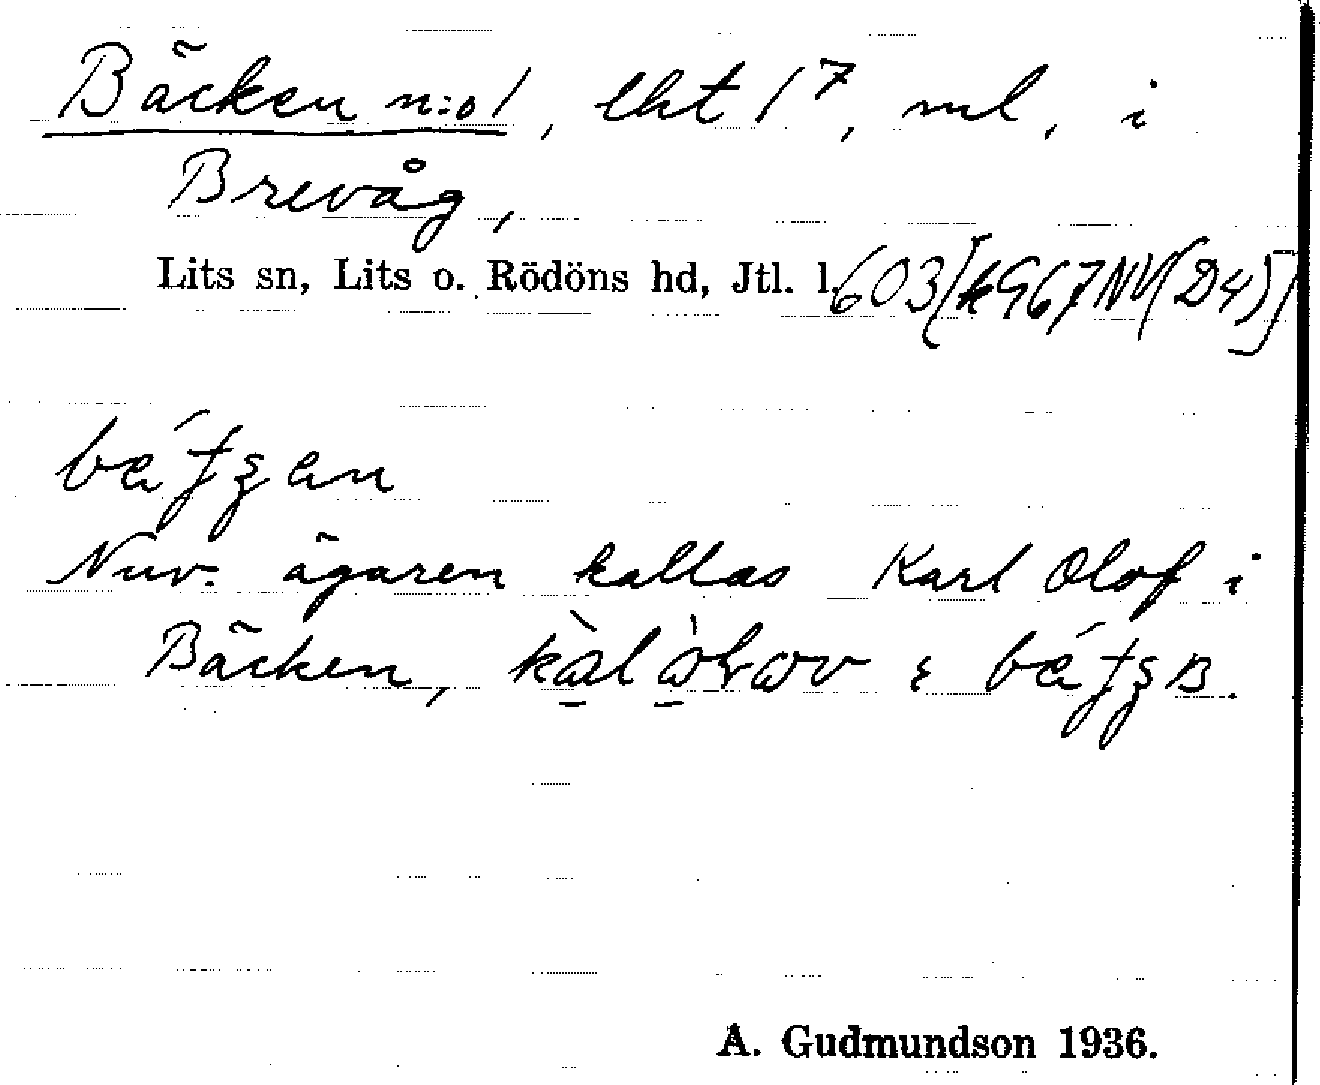 Bäcken n:o 1, lht 1⁷, ml, i
Brevåg,
Lits sn, Lits o. Rödöns hd, Jtl. l. 603[k967NV(D4)]
Nuv. ägaren kallas Karl Olof i
Bäcken,
A. Gudmundson 1936.